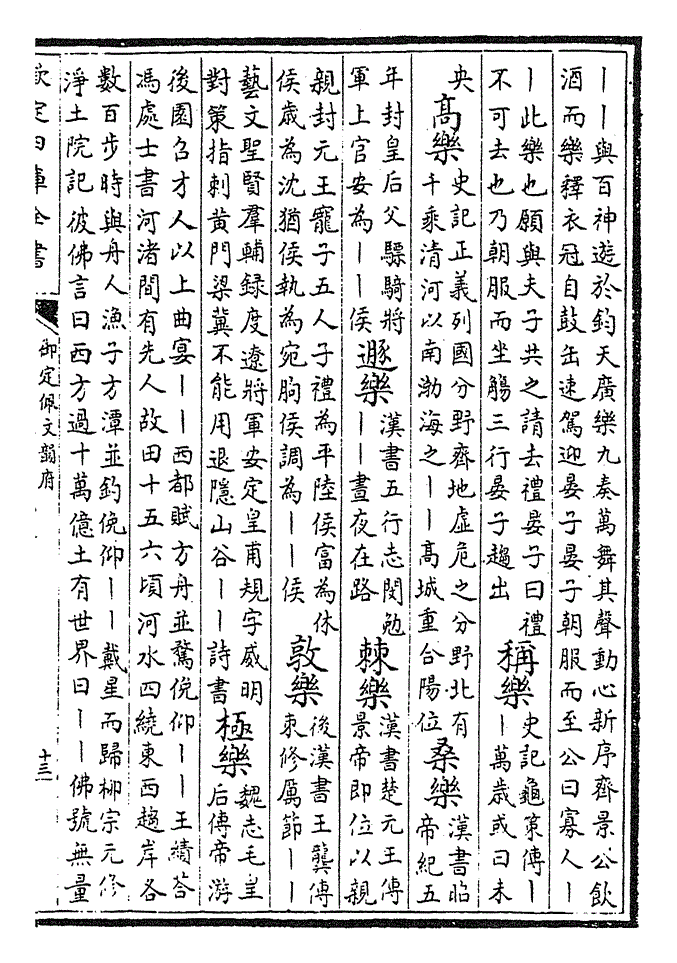 丨丨與百神遊於鈞天廣樂九奏萬舞其聲動心新序齊景公飲
酒而樂釋衣冠自鼓缶速駕迎晏子晏子朝服而至公曰寡人丨
丨此樂也願與夫子共之請去禮晏子曰禮
不可去也乃朝服而坐觴三行晏子趨出
稱樂
史記龜策傳丨
丨萬歲或曰未
央
高樂
史記正義列國分野齊地虛危之分野北有
千乘清河以南渤海之丨丨高城重合陽位
桑樂
漢書昭
帝紀五
年封皇后父驃騎將
軍上官安為丨丨侯
遯樂
漢書五行志閔勉
丨丨晝夜在路
棘樂
漢書楚元王傳
景帝即位以親
親封元王寵子五人子禮為平陸侯富為休
侯歲為沈猶侯執為宛朐侯調為丨丨侯
敦樂
後漢書王龔傳
束修厲節丨丨
藝文聖賢羣輔録度遼將軍安定皇甫規字威明
對策指刺黄門梁冀不能用退隱山谷丨丨詩書
極樂
魏志毛皇
后傳帝游
後園召才人以上曲宴丨丨西都賦方舟並騖俛仰丨丨王績荅
馮處士書河渚間有先人故田十五六頃河水四繞東西趨岸各
數百步時與舟人漁子方潭並釣俛仰丨丨戴星而歸柳宗元修
淨土院記彼佛言曰西方過十萬億土有世界曰丨丨佛號無量
欽定四庫全書
御定佩文韻府
十三